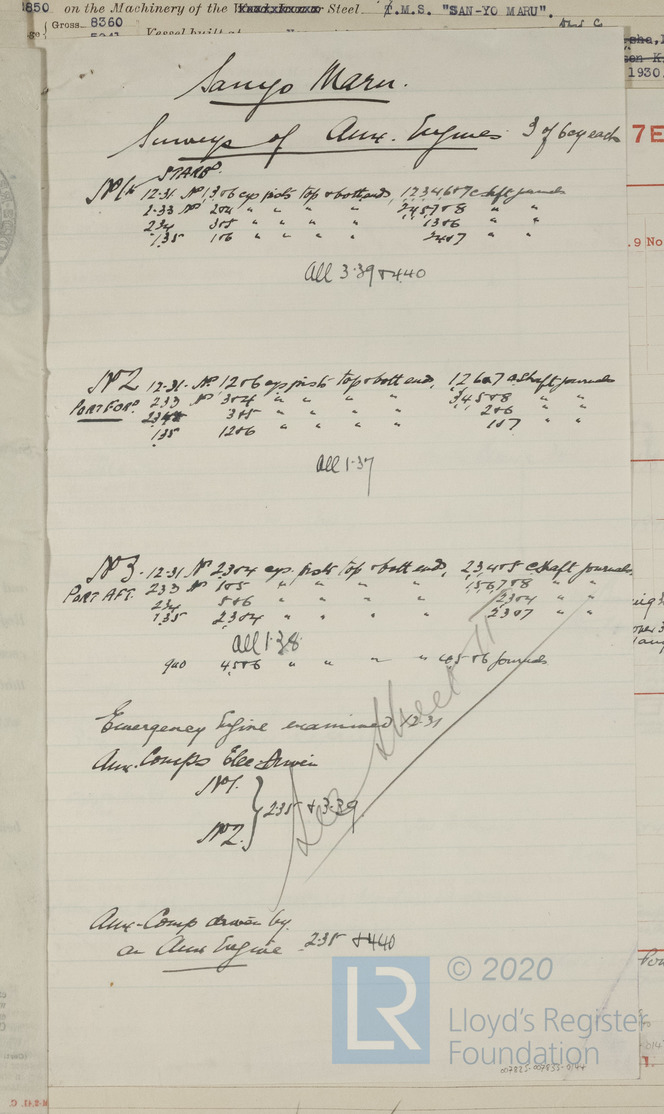 8850 on the Machinery of the Wxxxxxxxxx or Steel T.M.S. "SAN-YO MARU".
Gross 8360
Vessel built at
1930.
7E
.9 No
Sanyo Maru.
Surveys of Aux. Engines 3 of 6 cy each
No 1 STARBD.
12.31 No 1,3&6 cyp pists top & bott ends, 1234 6&7 c shaft journals
2.33 No 2&4 " " " " " 2 4 5 7 & 8 " "
2.34 3&5 " " " " 1 3 & 6 " "
1.35 1&6 " " " " 2 4 & 7 " "
All 3.39 & 4.40
No 2 12.31. No 1 2 & 6 cyp pists top & bott end, 1 2 6 & 7 c shaft journals
PORT FORD. 2.33 No 3&4 " " " " 3 4 5 & 8 " "
2.34 3&5 " " " " 2&6 " "
1.35 1 2 & 6 " " " " 1&7 " "
All 1.37
No 3. 12.31 No 2 3 & 4 cyp. pists top & bott end, 2 3 4 & 8 c shaft journals
PORT AFT. 2.33 No 1&5 " " " " 1 5 6 7 & 8 " "
2.34 5&6 " " " " 2 3 & 4 " "
1.35 2 3 & 4 " " " " 2 3 & 7 " "
All 1.38
9.40 4 5 & 6 " " " " 4 5 & 6 journals
See Sheet II
Emergency Engine examined 12.31
Aux. Comps Elec Driven
No 1.
2.35 & 3.39
No 2.
Aux-Comp driven by
an Aux Engine 2.35 & 4.40
LR © 2020
Lloyd's Register
Foundation
007825-007833-0144